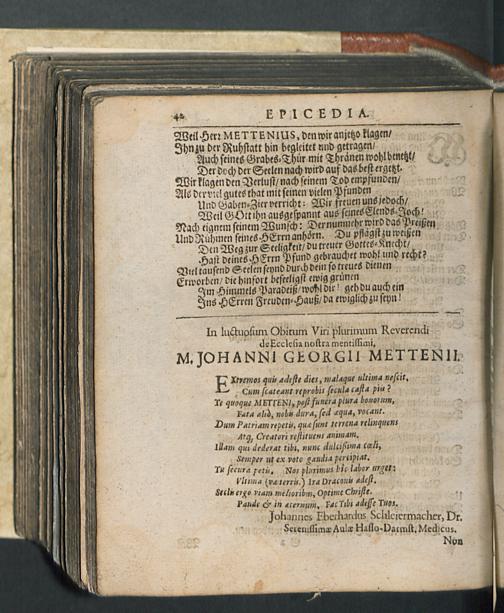 42 EPICEDIA
Weil Herr METTENIUS, den wir anjetzo klagen/
Ihn zu der Ruhstatt hin begleitet und getragen/
Auch seines Grabes-Thür mit Thränen wohl benetzt/
Der doch der Seelen nach wird auf das best ergetzt.
Wir klagen den Verlust/ nach seinem Tod empfunden/
Als der viel gutes that mit seinen vielen Pfunden
Und Gaben-Zier verricht: Wir freuen uns jedoch/
Weil GOtt ihn ausgespannt aus seines Elends-Joch!
Nach eignem seinem Wunsch: Der nunmehr wird das Preißen
Und Rühmen seines HErrn anhörn. Du pflagst zu weißen
Den Weg zur Seeligkeit/ du treuer Gottes-Knecht/
Hast deines HErrn Pfund gebrauchet wohl und recht?
Viel tausend Seelen seynd durch dein so treues dienen
Erworben/ die hinfort beseeligst ewig grünen
Im Himmels Paradeiß/ wohl dir! geh du auch ein
Ins HErren Freuden-Hauß/ da ewiglich zu seyn!
In luctuosum Obitum Viri plurimum Reverendi
de Ecclesia nostra mentissimi,
M. JOHANNI GEORGII METTENII.
EXtremos quis adeste dies, malaque ultima nescit,
Cum scateant reprobis secula casta piu?
Te quoque METTENI, post funera plura bonorum,
Fata aliò, nobis dura, sed æqua, vocant.
Dum Patriam repetis, quæ sunt terrena relinquens
Atq, Creatori restituens animam,
Illam qui dederat tibi, nunc dulcissima cœli,
Semper ut ex voto gaudia percipiat.
Tu secura petis. Nos plurimus hîc labor urget:
Vltima (væ terris!) Ira Draconis adest.
Seclis ergo viam melioribus, Optime Christe.
Pande & in æternum, Fac Tibi adesse Tuos.
Johannes Eberhardus Schleiermacher, Dr.
Serenissimæ Aulæ Hasso-Darmst. Medicus.
Non